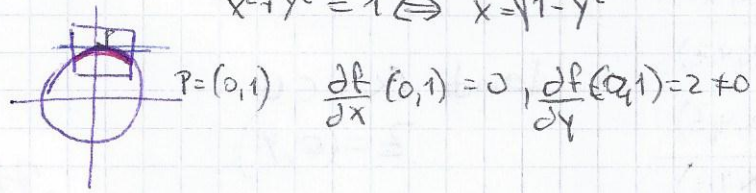 x²+y² = 1 ⇔ x=√1-y²
P
P=(0,1) ∂f/∂x (0,1) = 0, ∂f/∂y (0,1)=2≠0